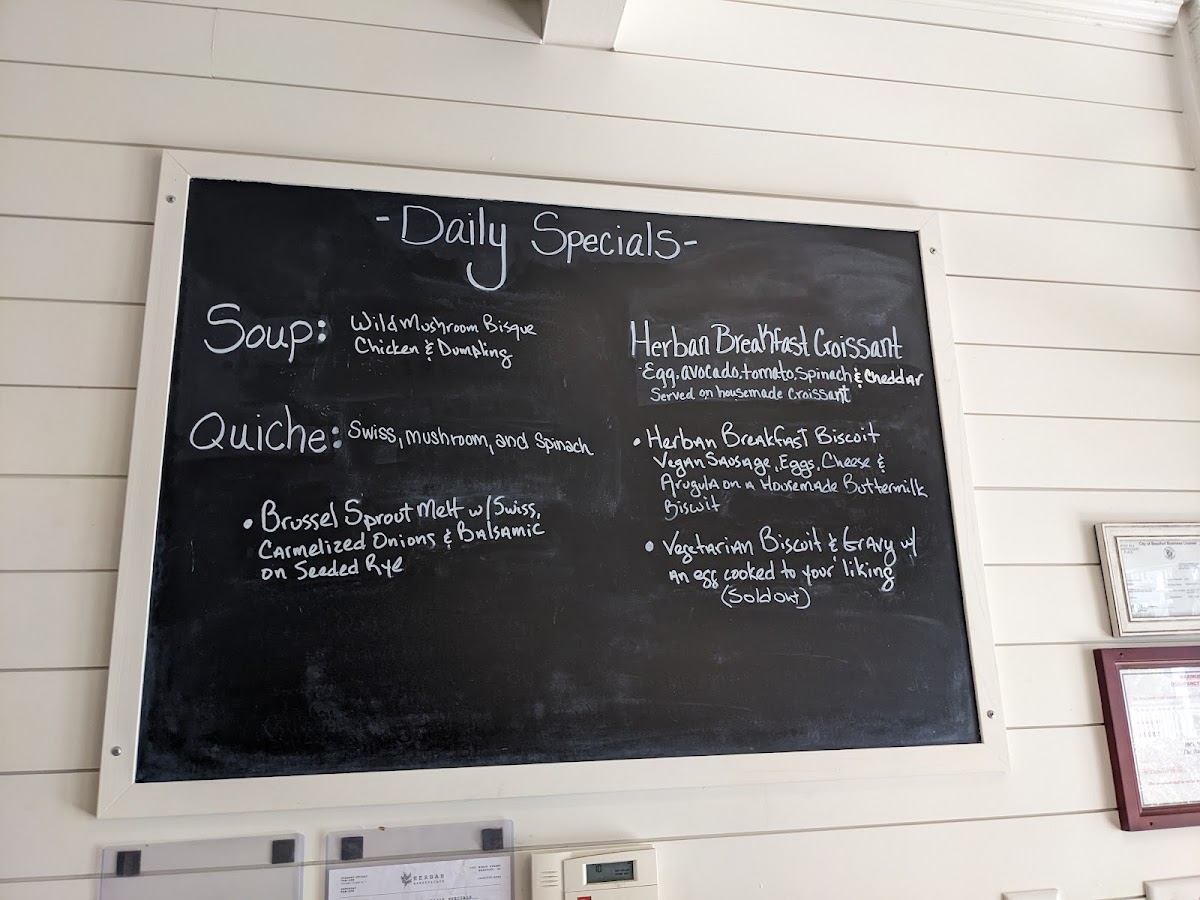 -Daily Specials-
Soup:
Wild Mushroom Bisque
Chicken & Dumpling
Quiche:
Swiss, mushroom, and Spinach
• Brussel Sprout Melt w/ Swiss,
Carmelized Onions & Balsamic
on Seeded Rye
Herban Breakfast Croissant
Egg, avocado, tomato, spinach & Cheddar
Served on housemade Croissant
• Herban Breakfast Biscuit
Vegan Sausage, Eggs, Cheese &
Arugula on a Housemade Buttermilk
Biscuit
• Vegetarian Biscuit & Gravy w/
an egg cooked to your liking
(Sold out)
City of Beaufort Business License
HERBAN